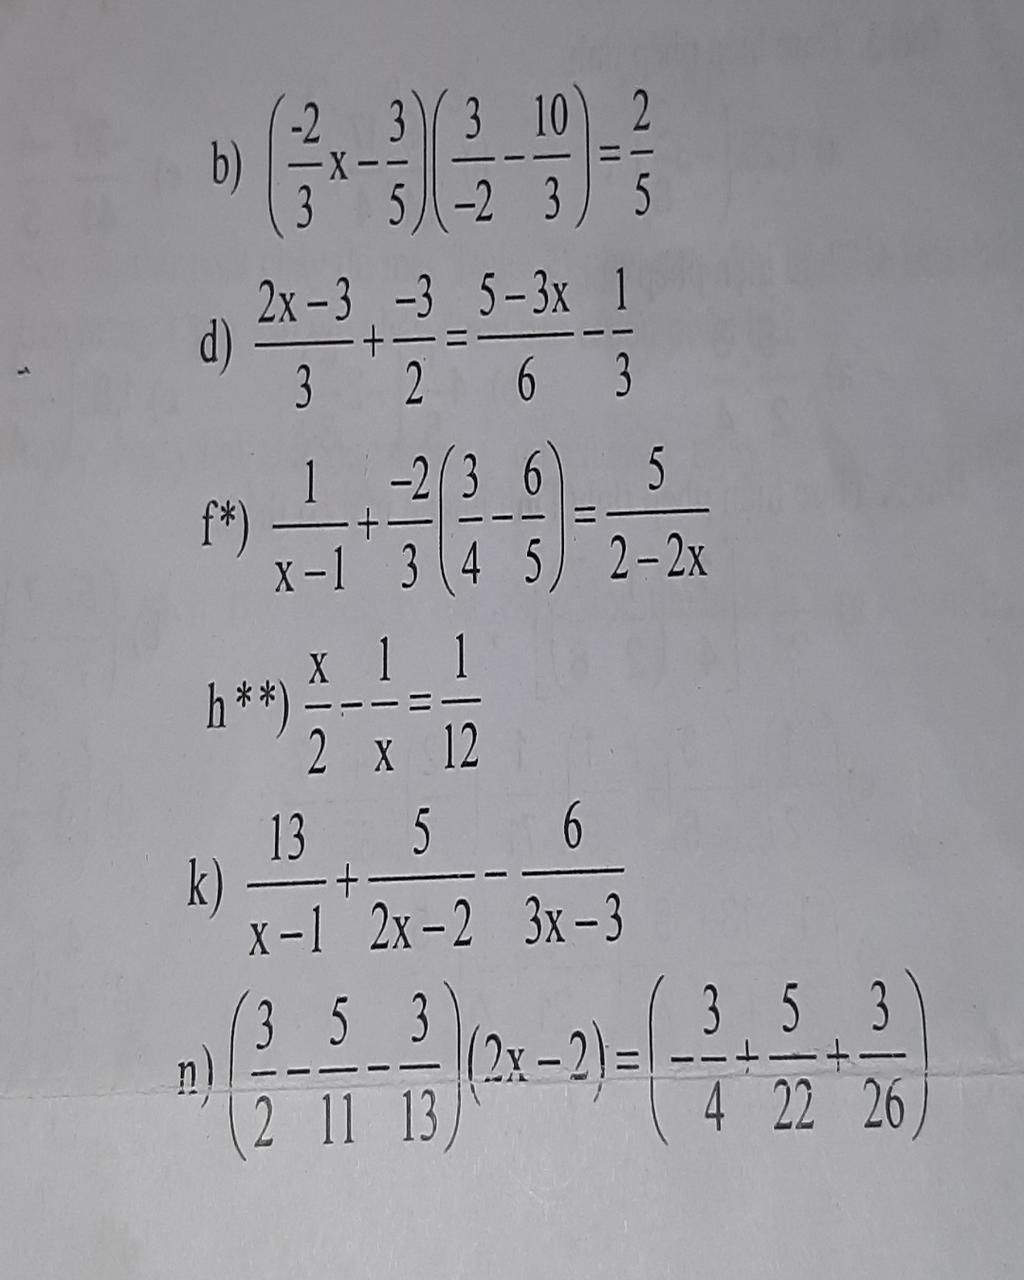 b) (-2/3 x − 3/5)(3/−2 − 10/3) = 2/5
d) 2x − 3/3 + −3/2 = 5 − 3x/6 − 1/3
f*) 1/x − 1 + −2/3 (3/4 − 6/5) = 5/2 − 2x
h**) x/2 − 1/x = 1/12
k) 13/x − 1 + 5/2x − 2 − 6/3x − 3
n) (3/2 − 5/11 − 3/13)(2x − 2) = (− 3/4 + 5/22 + 3/26)